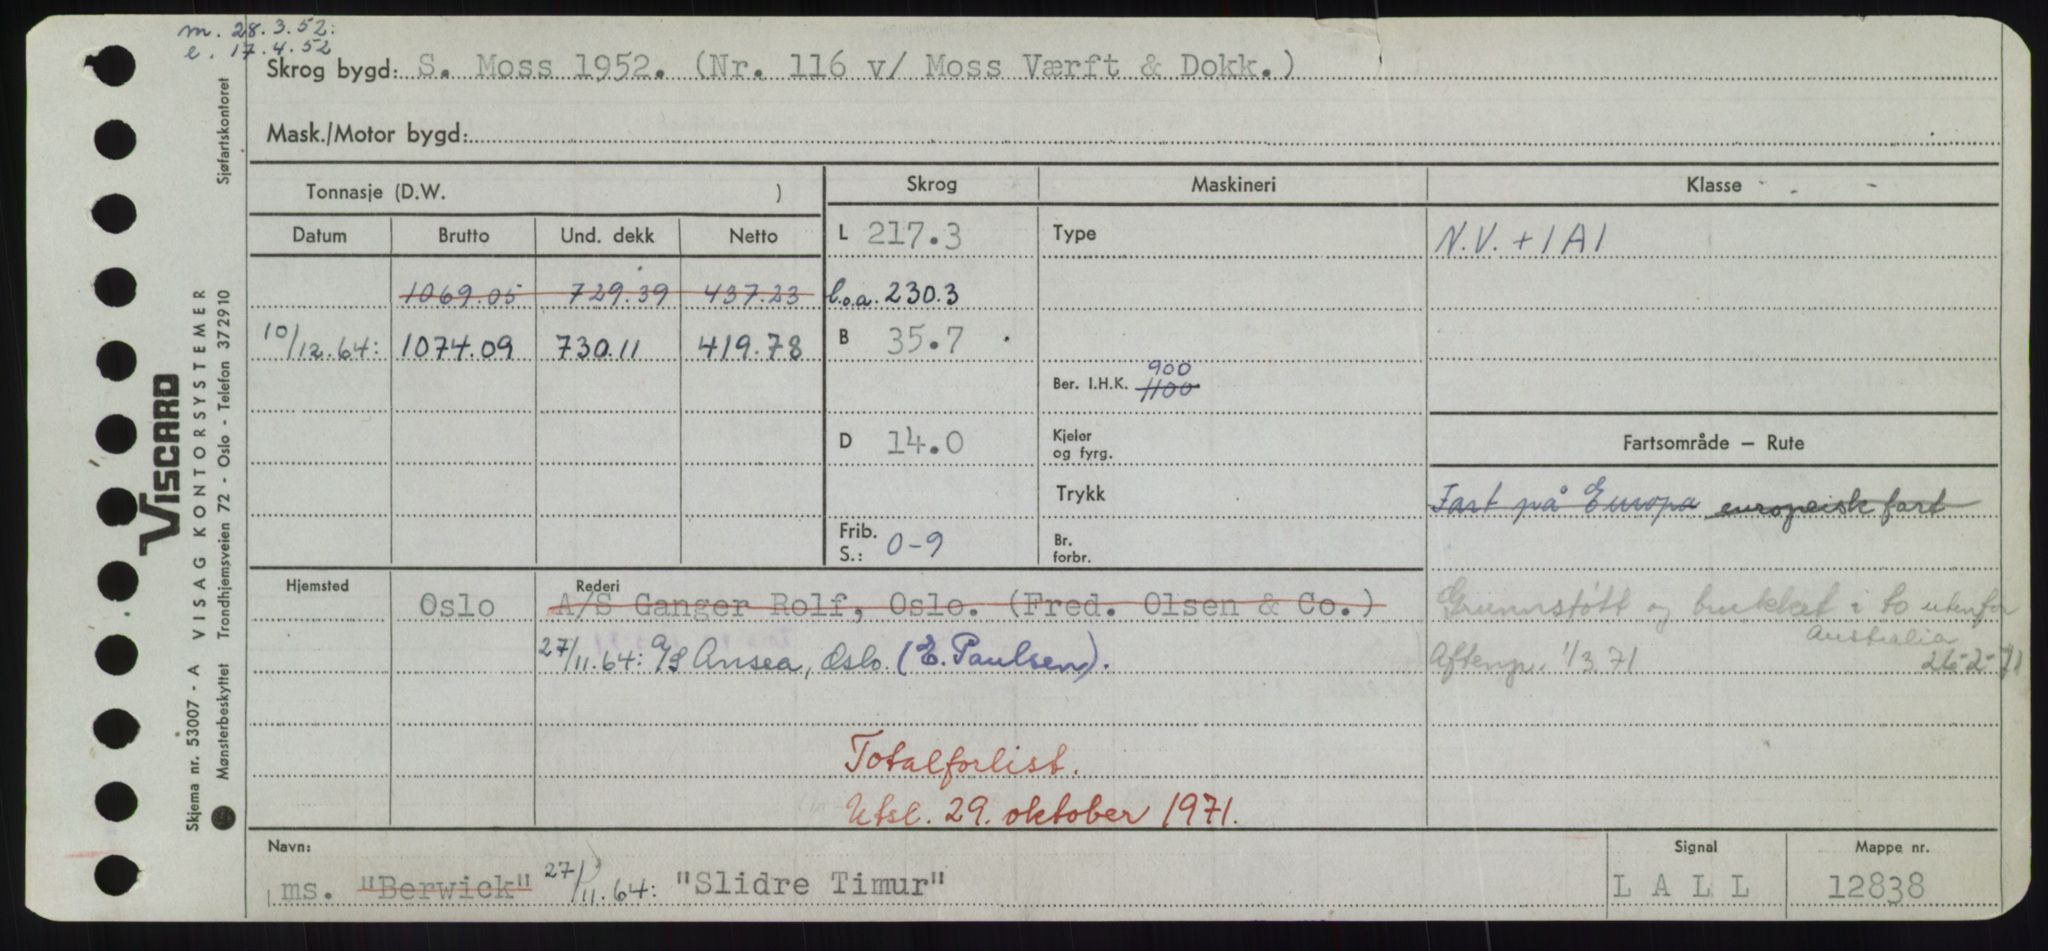 m. 28.3.52:
e. 17.4.52
Skrog bygd: S. Moss 1952. (Nr. 116 v/ Moss Værft & Dokk.)
Mask./Motor bygd:
Tonnasje (D.W. )
Skrog Maskineri Klasse
Datum Brutto Und. dekk Netto
L 217.3 Type N.V. + 1 A 1
1069.05 729.39 437.23 l.o.a. 230.3
10/12.64: 1074.09 730.11 419.78 B 35.7
900
Ber. I.H.K. 1100
D 14.0 Kjeler og fyrg. Fartsområde – Rute
Trykk Fart på Europa europeisk fart
Frib. S.: 0-9 Br. forbr.
Hjemsted Rederi
Oslo A/S Ganger Rolf, Oslo. (Fred. Olsen & Co.) Grunnstøtt og brukket i to utenfor
Australia
27/11.64: A/S Ansea, Oslo. (E. Paulsen). Aftenp. 1/3.71 26-2-71
Totalforlist.
Utsl. 29. oktober 1971.
Navn: Signal Mappe nr.
ms. "Berwick" 27/11.64: "Slidre Timur" L A L L 12838
Skjema nr. 53007 - A VISAG KONTORSYSTEMER
Mønsterbeskyttet Trondhjemsveien 72 - Oslo - Telefon 372910
Sjøfartskontoret
VISCARD